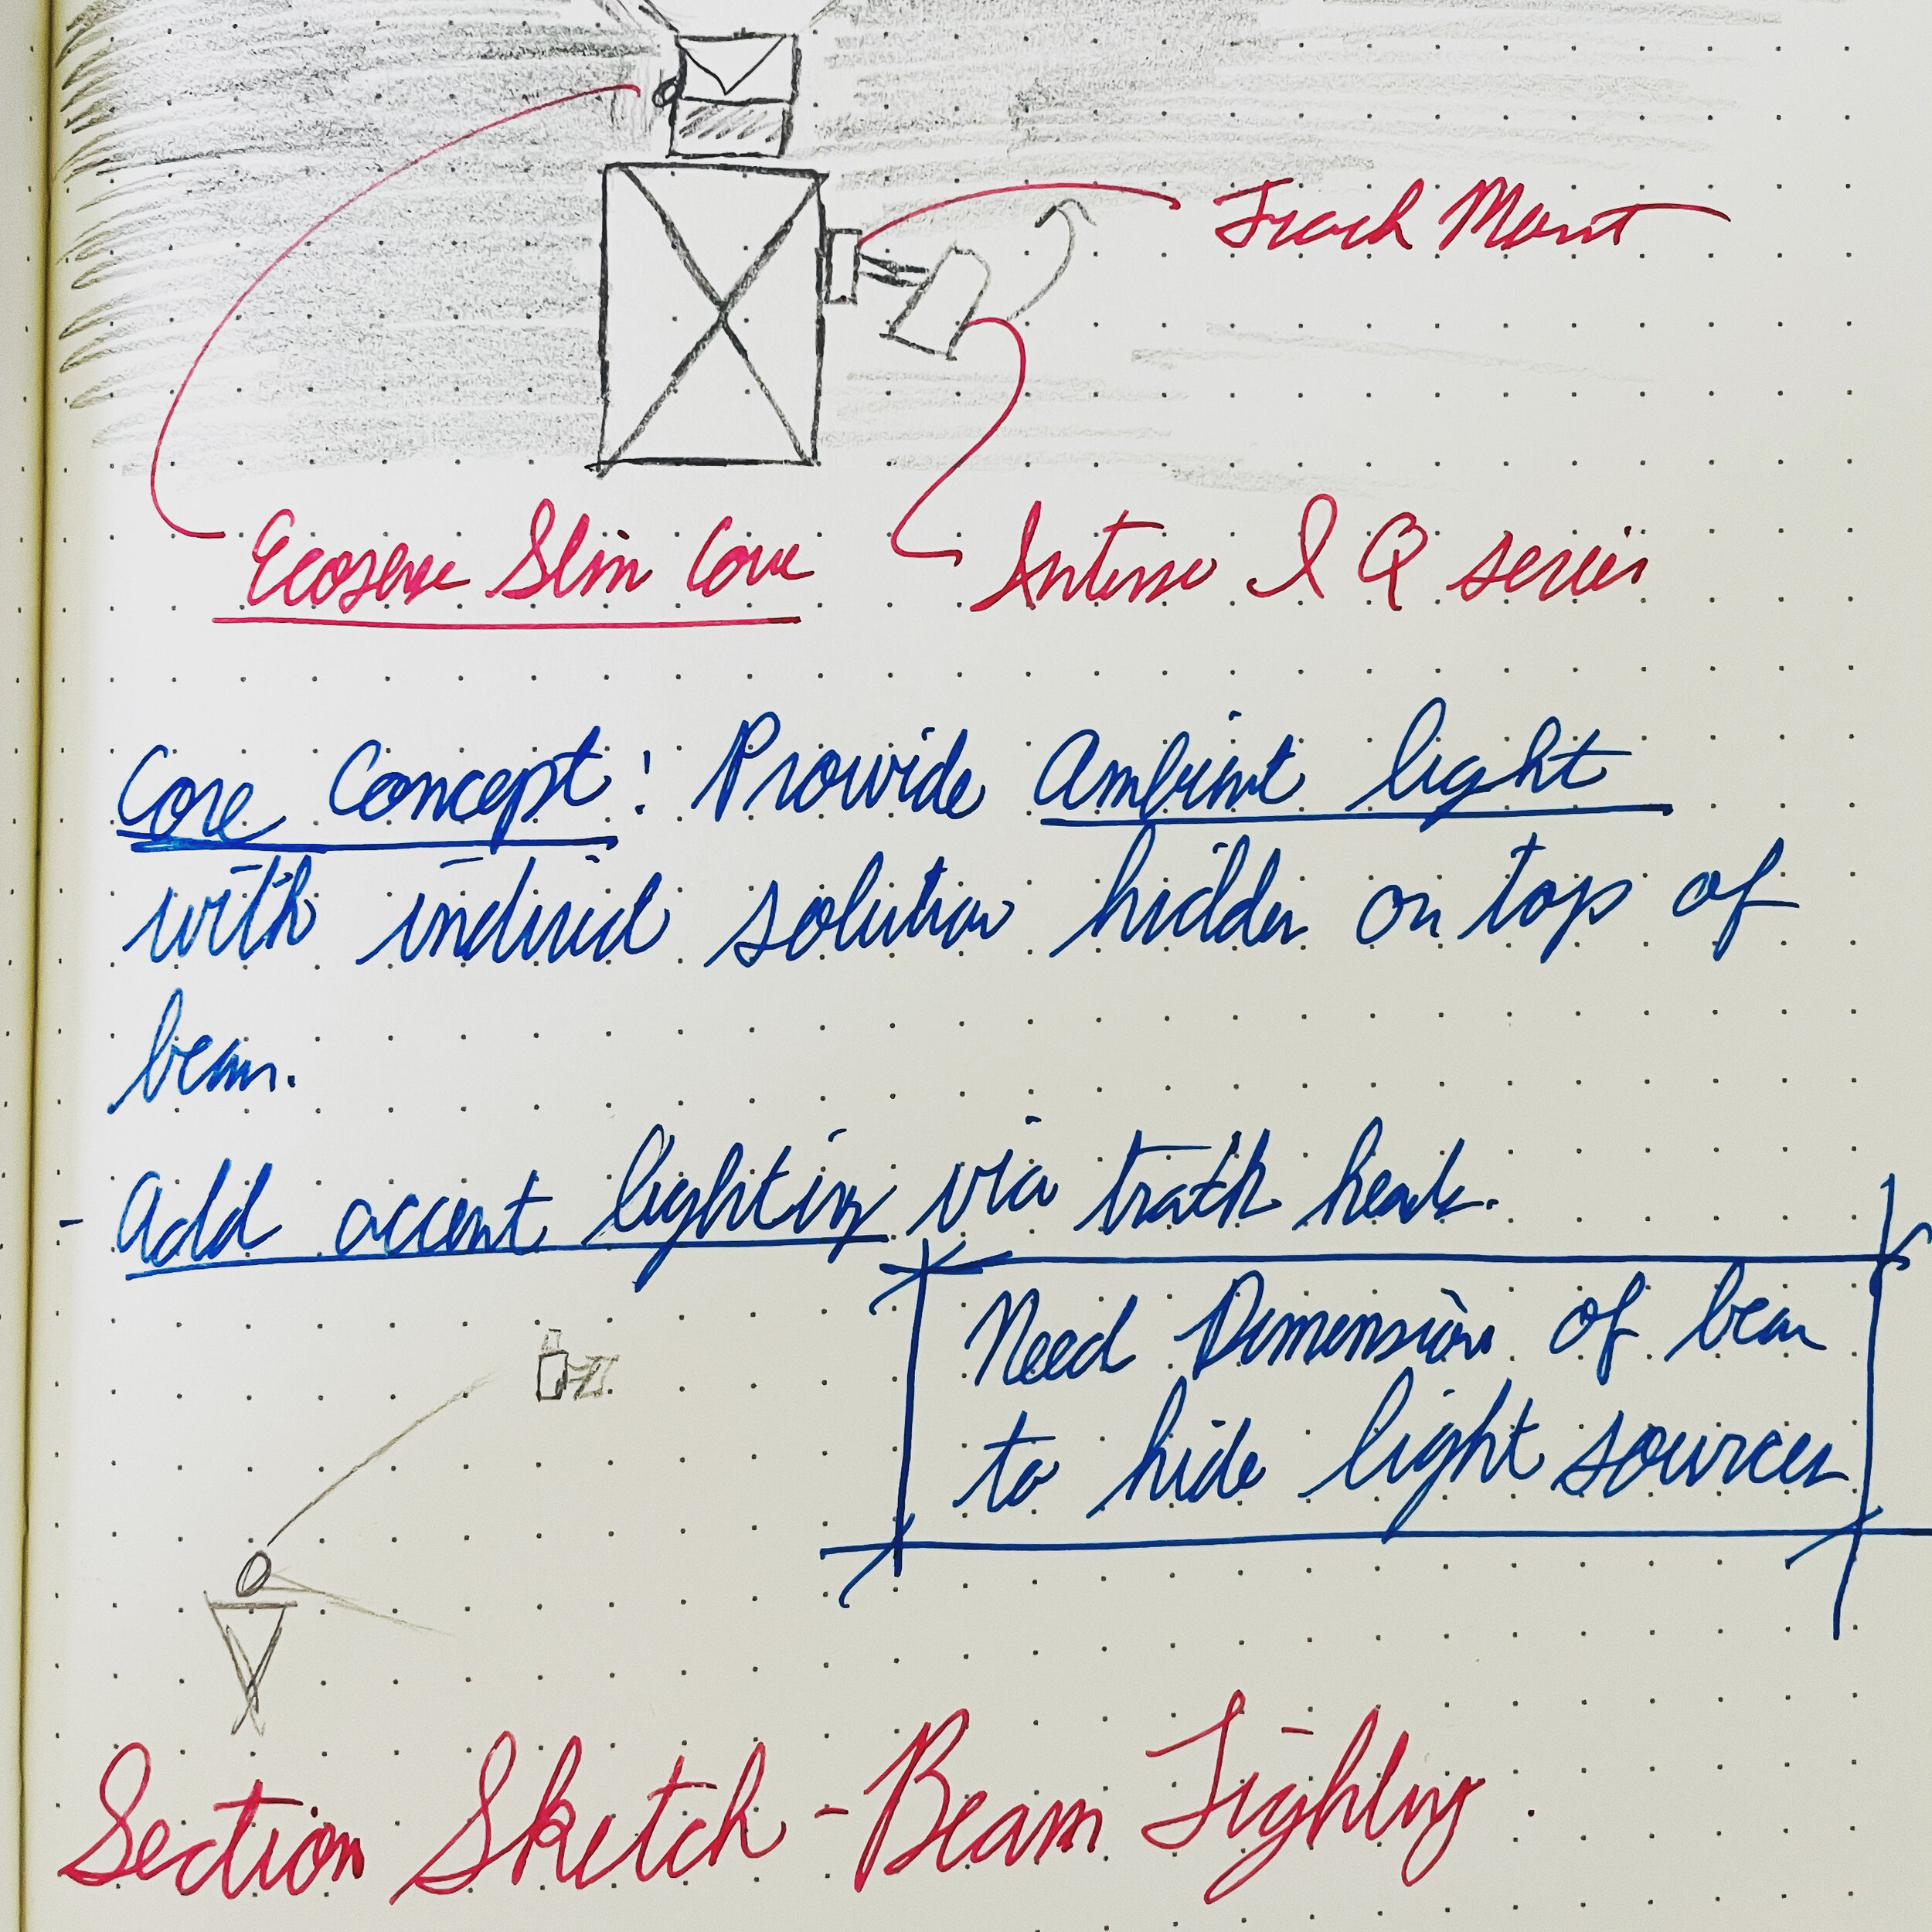 Track Mount
Ecosense Slim Cove
Intense I Q series
Core Concept: Provide Ambient light
with indirect solution hidden on top of
beam.
- Add accent lighting via track heads.
Need Dimension of beam
to hide light sources
Section Sketch - Beam Lighting.